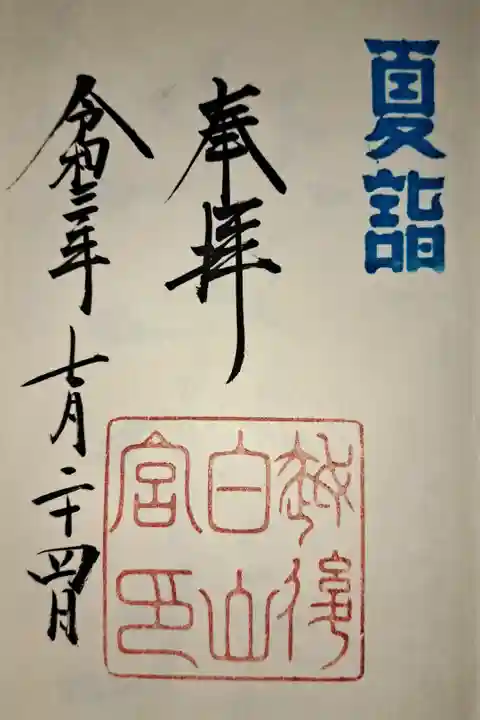 夏詣
奉拝
越後
白山
宮印
令和三年七月二十四日